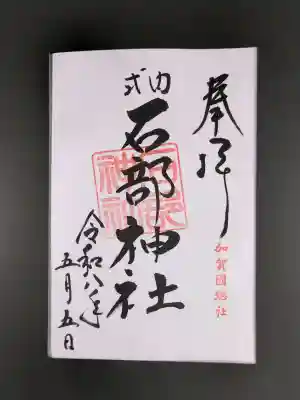 奉拝
加賀國総社
式内
石部神社
令和八年
五月五日